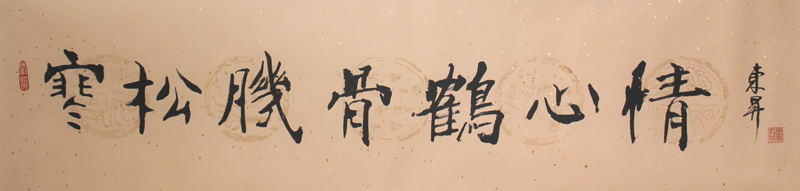 寒松𦠄骨鶴心情
東昇